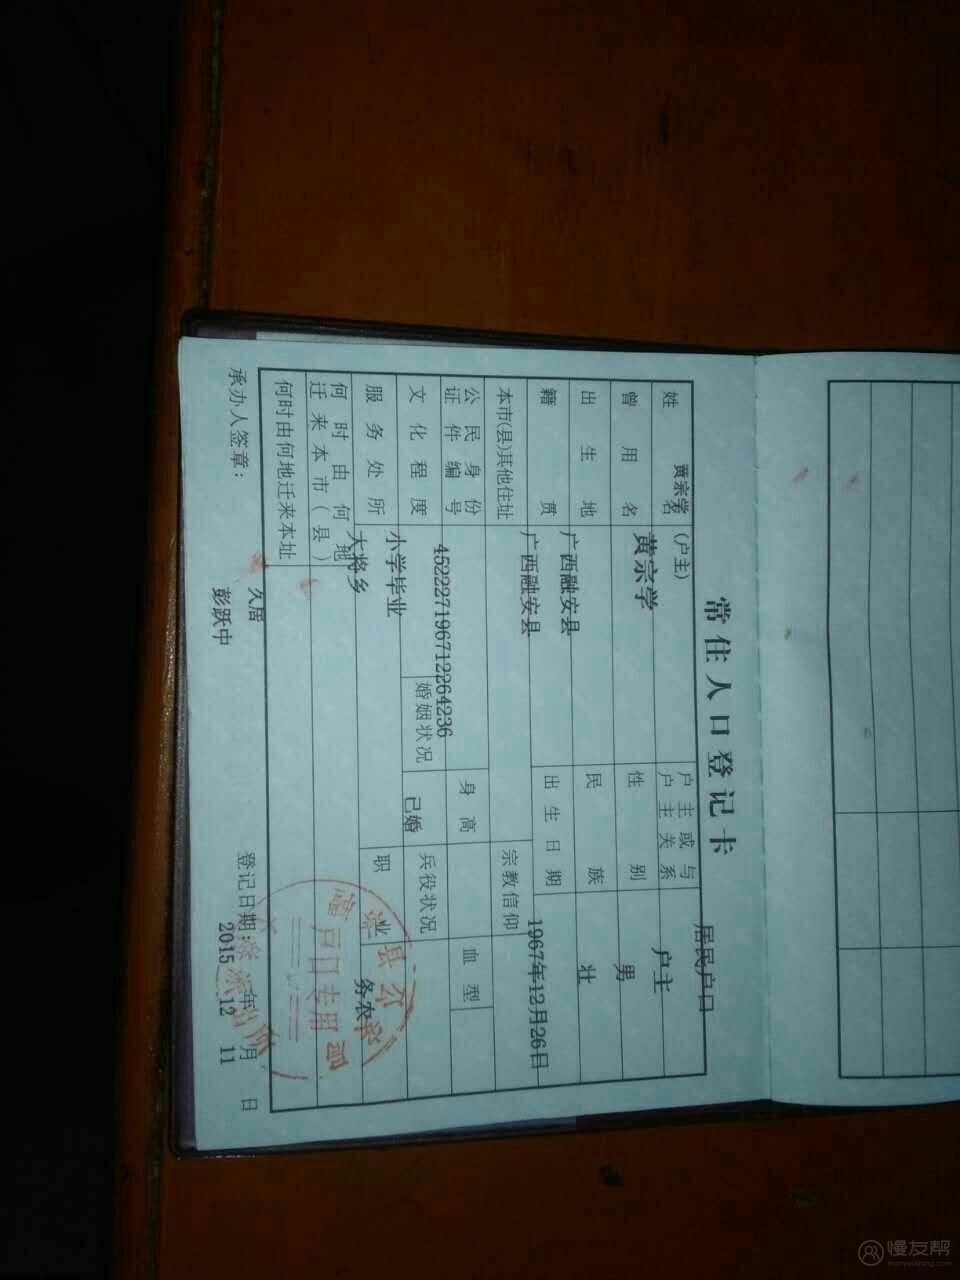 常住人口登记卡
居民户口
黄宗学(户主)
姓 名 黄宗学 户主或与户主关系 户主
曾用名 性别 男
出生地 广西融安县 民族 壮
籍贯 广西融安县 出生日期 1967年12月26日
本市(县)其他住址 宗教信仰
公民身份证件编号 452227196712264236 身高 血型
文化程度 小学毕业 婚姻状况 已婚 兵役状况
服务处所 大将乡 职业 务农
何时由何地迁来本市(县)
何时由何地迁来本址 久居
承办人签章: 彭跃中 登记日期: 2015年12月11日
户口专用
慢友帮